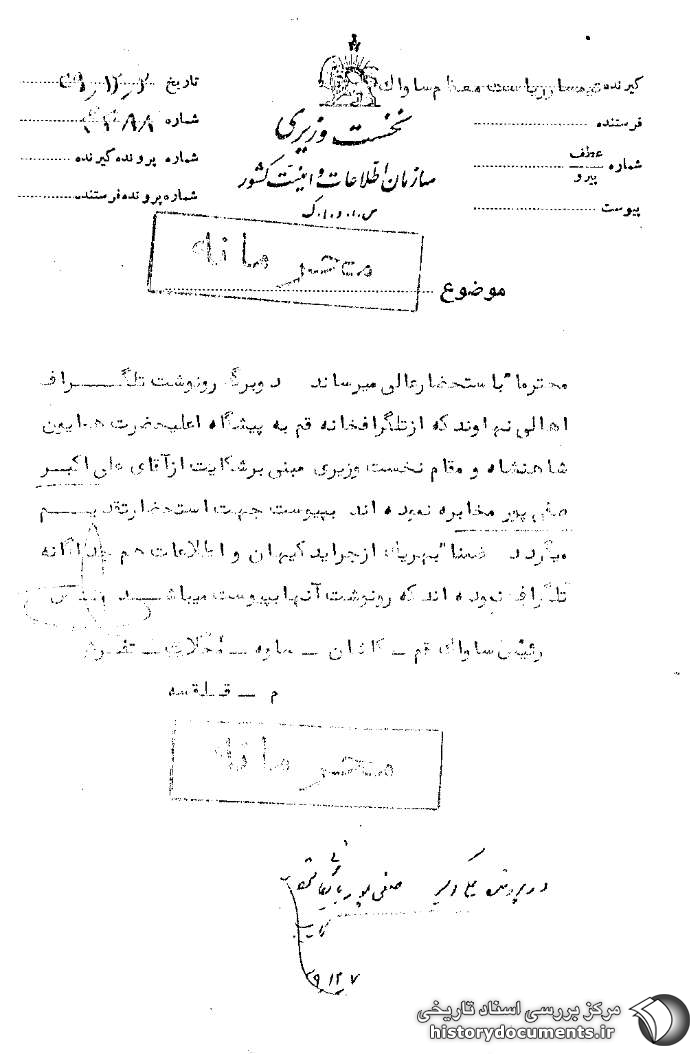 گیرنده تیمسار ریاست معظم ساواك
فرستنده
شماره عطف
پیرو
پیوست
نخست وزیری
سازمان اطلاعات و امنیت کشور
س.ا.و.ا.ک
تاریخ
شماره
شماره پرونده گیرنده
شماره پرونده فرستنده
محرمانه
موضوع
محترما" باستحضارعالی میرساند دوبرگ رونوشت تلگراف
اهالی نهاوند که ازتلگرافخانه قم به پیشگاه اعلیحضرت همایون
شاهنشاه و مقام نخست وزیری مبنی برشکایت ازآقای علی اکبر
صفی پور مخابره نموده اند بپیوست جهت استحضارتقدیم
میگردد ضمنا" بهریك ازجراید کیهان و اطلاعات هم جداگانه
تلگراف نموده اند که رونوشت آنها بپیوست میباشد
رئیس ساواك قم ـ کاشان ـ ساوه ـ محلات ـ تفرش
م ـ قلقسه
محرمانه
در پرونده علی اکبر صفی پور بایگانی
۹ ۱۲ ۷
مرکز بررسی اسناد تاریخی
historydocuments.ir